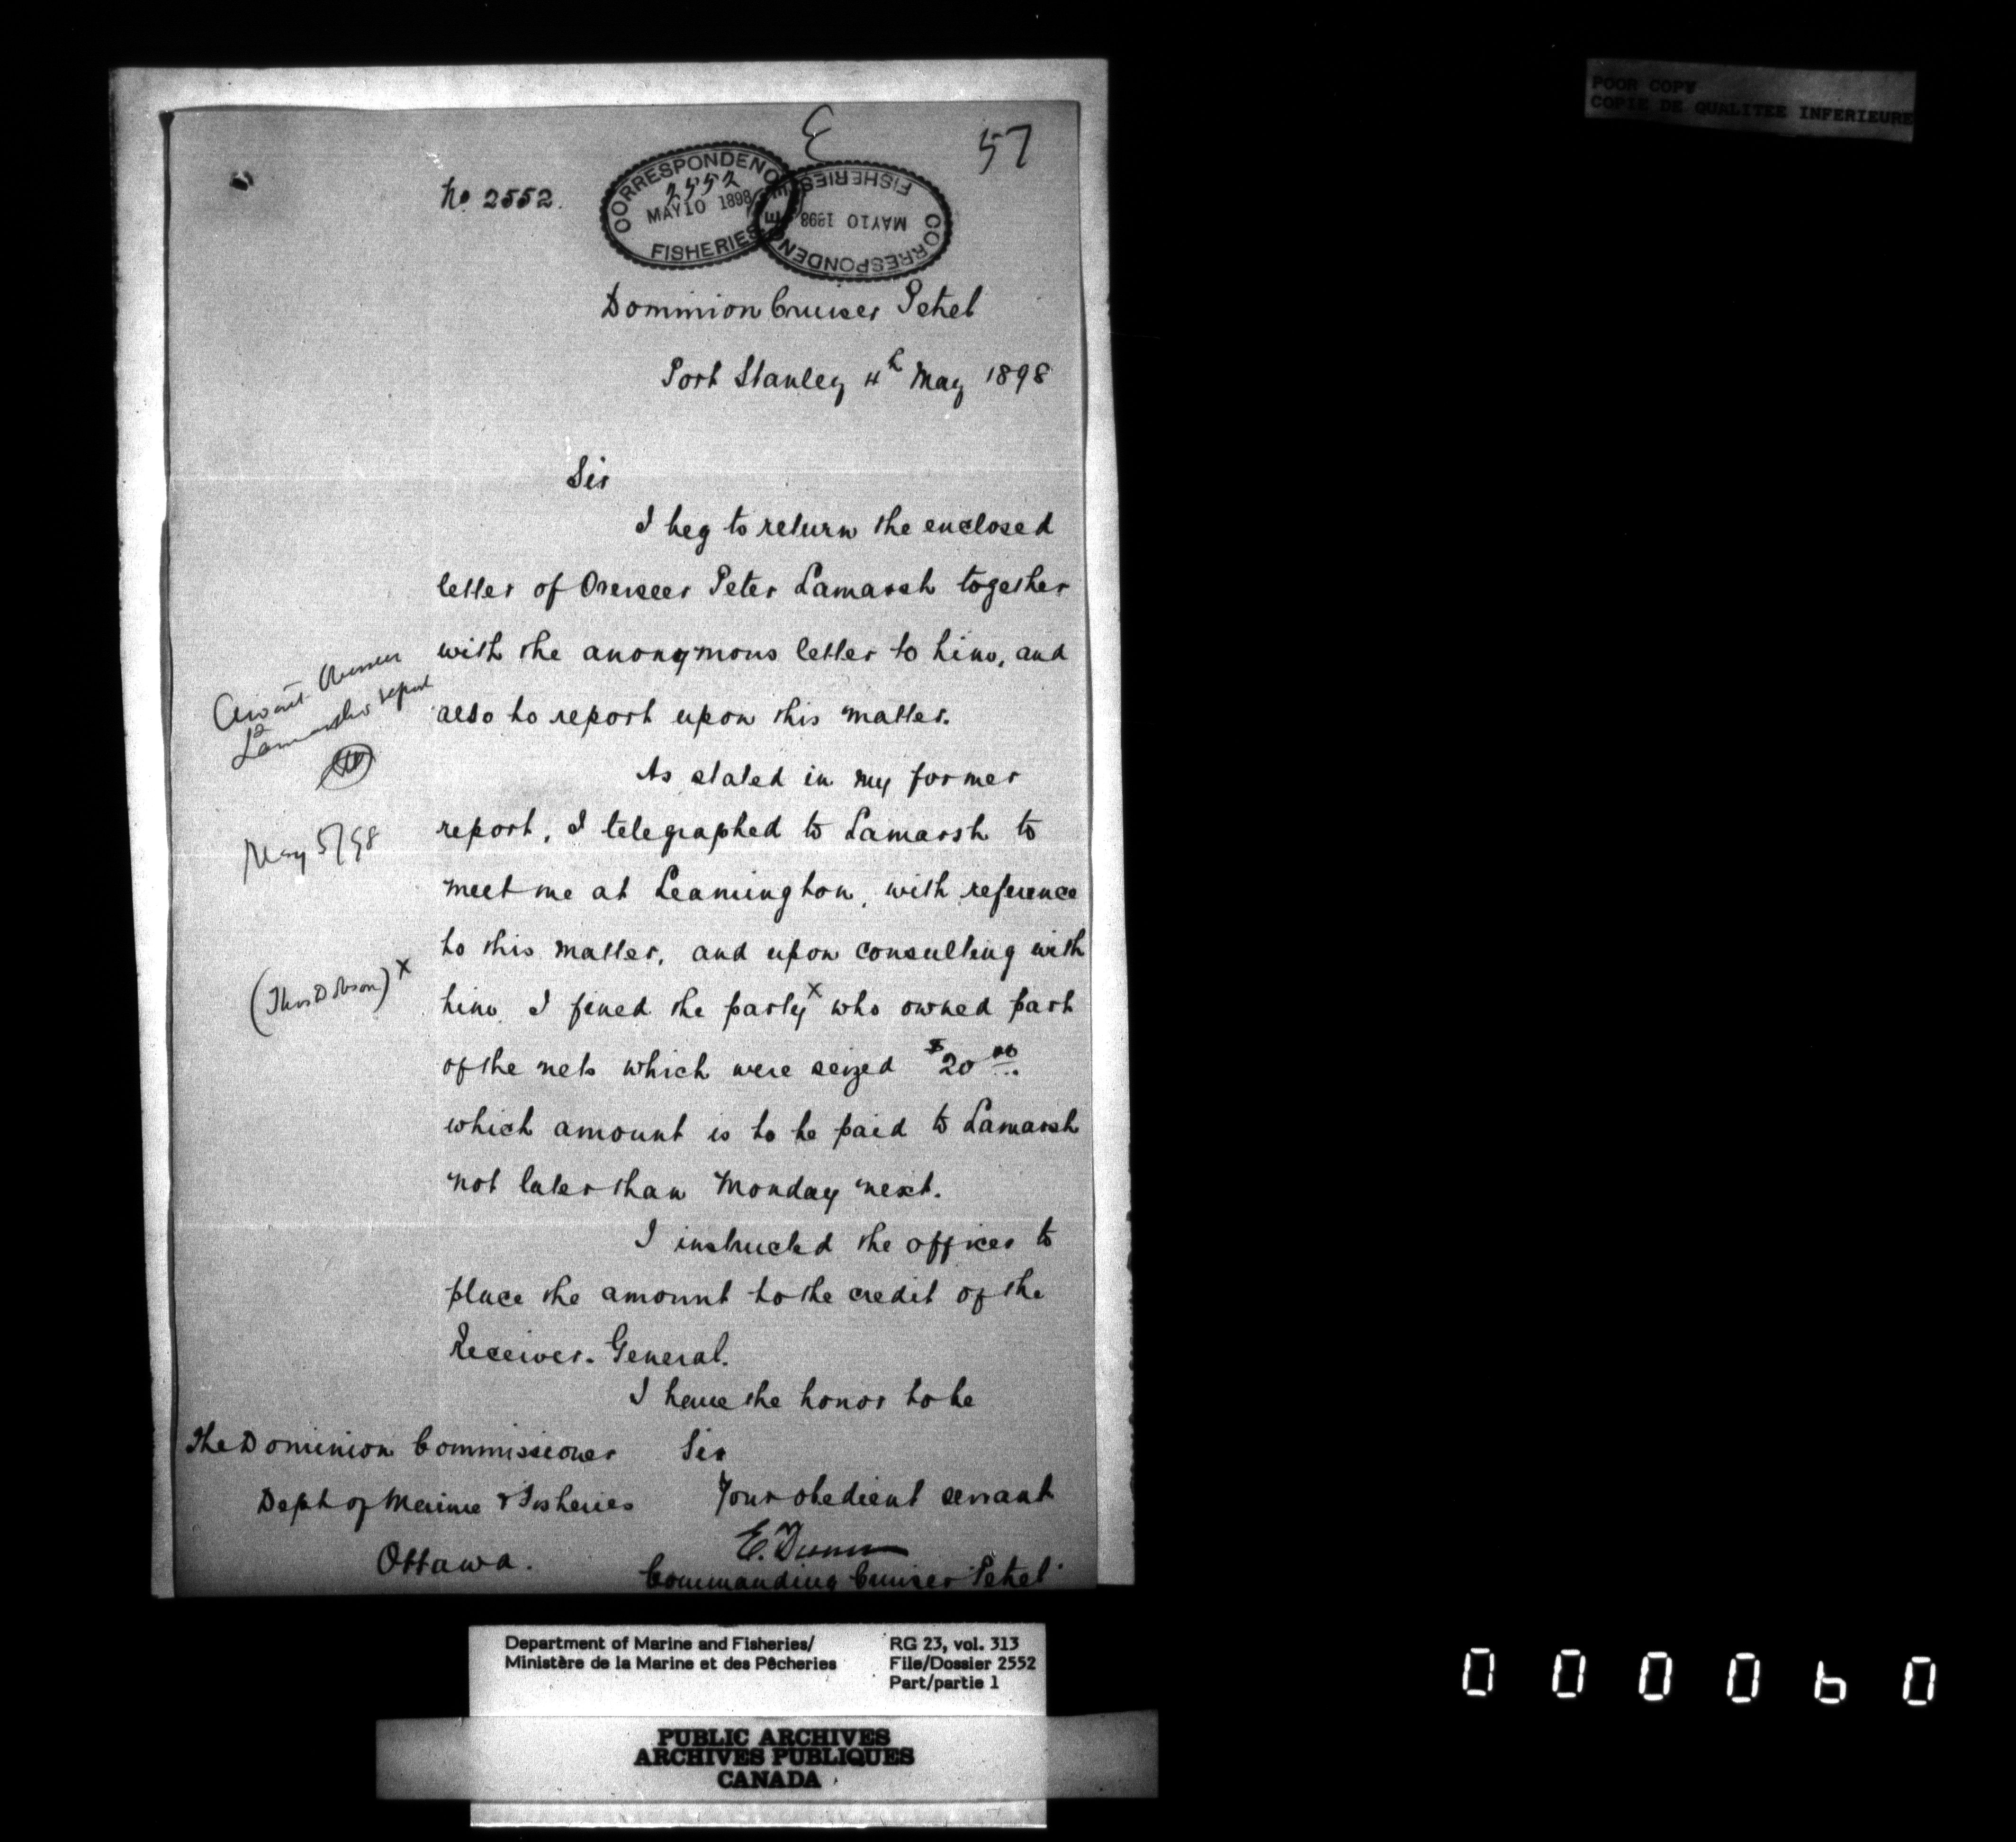 POOR COPY
COPIE DE QUALITEE INFERIEURE
57
No 2552.
CORRESPONDENCE
2552
MAY 10 1898
FISHERIES
CORRESPONDENCE
MAY 10 1898
FISHERIES
Dominion Cruiser Petrel
Port Stanley 4th May 1898
Sir
I beg to return the enclosed
letter of Overseer Peter Lamarsh together
with the anonymous letter to him, and
also to report upon this matter.
Await Overseer
Lamarsh's report
May 5/98
As stated in my former
report, I telegraphed to Lamarsh to
meet me at Leamington, with reference
to this matter, and upon consulting with
(Thos Dobson) x
him I fined the party x who owned part
of the nets which were seized $20.00
which amount is to be paid to Lamarsh
not later than Monday next.
I instructed the officer to
place the amount to the credit of the
Receiver-General.
I have the honor to be
Sir
Your obedient servant
E. Dunn
Commanding Cruiser "Petrel"
The Dominion Commissioner
Dept of Marine & Fisheries
Ottawa.
Department of Marine and Fisheries/
Ministère de la Marine et des Pêcheries
RG 23, vol. 313
File/Dossier 2552
Part/partie 1
PUBLIC ARCHIVES
ARCHIVES PUBLIQUES
CANADA
000060